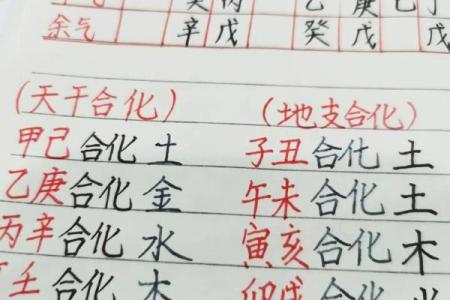 余气 辛 戊 癸 戊 戊
(天干合化) (地支合化)
甲己合化土 子丑合化土
乙庚合化金 午未合化土
丙辛合化水 寅亥合化木
壬合化木 卯戌合化火